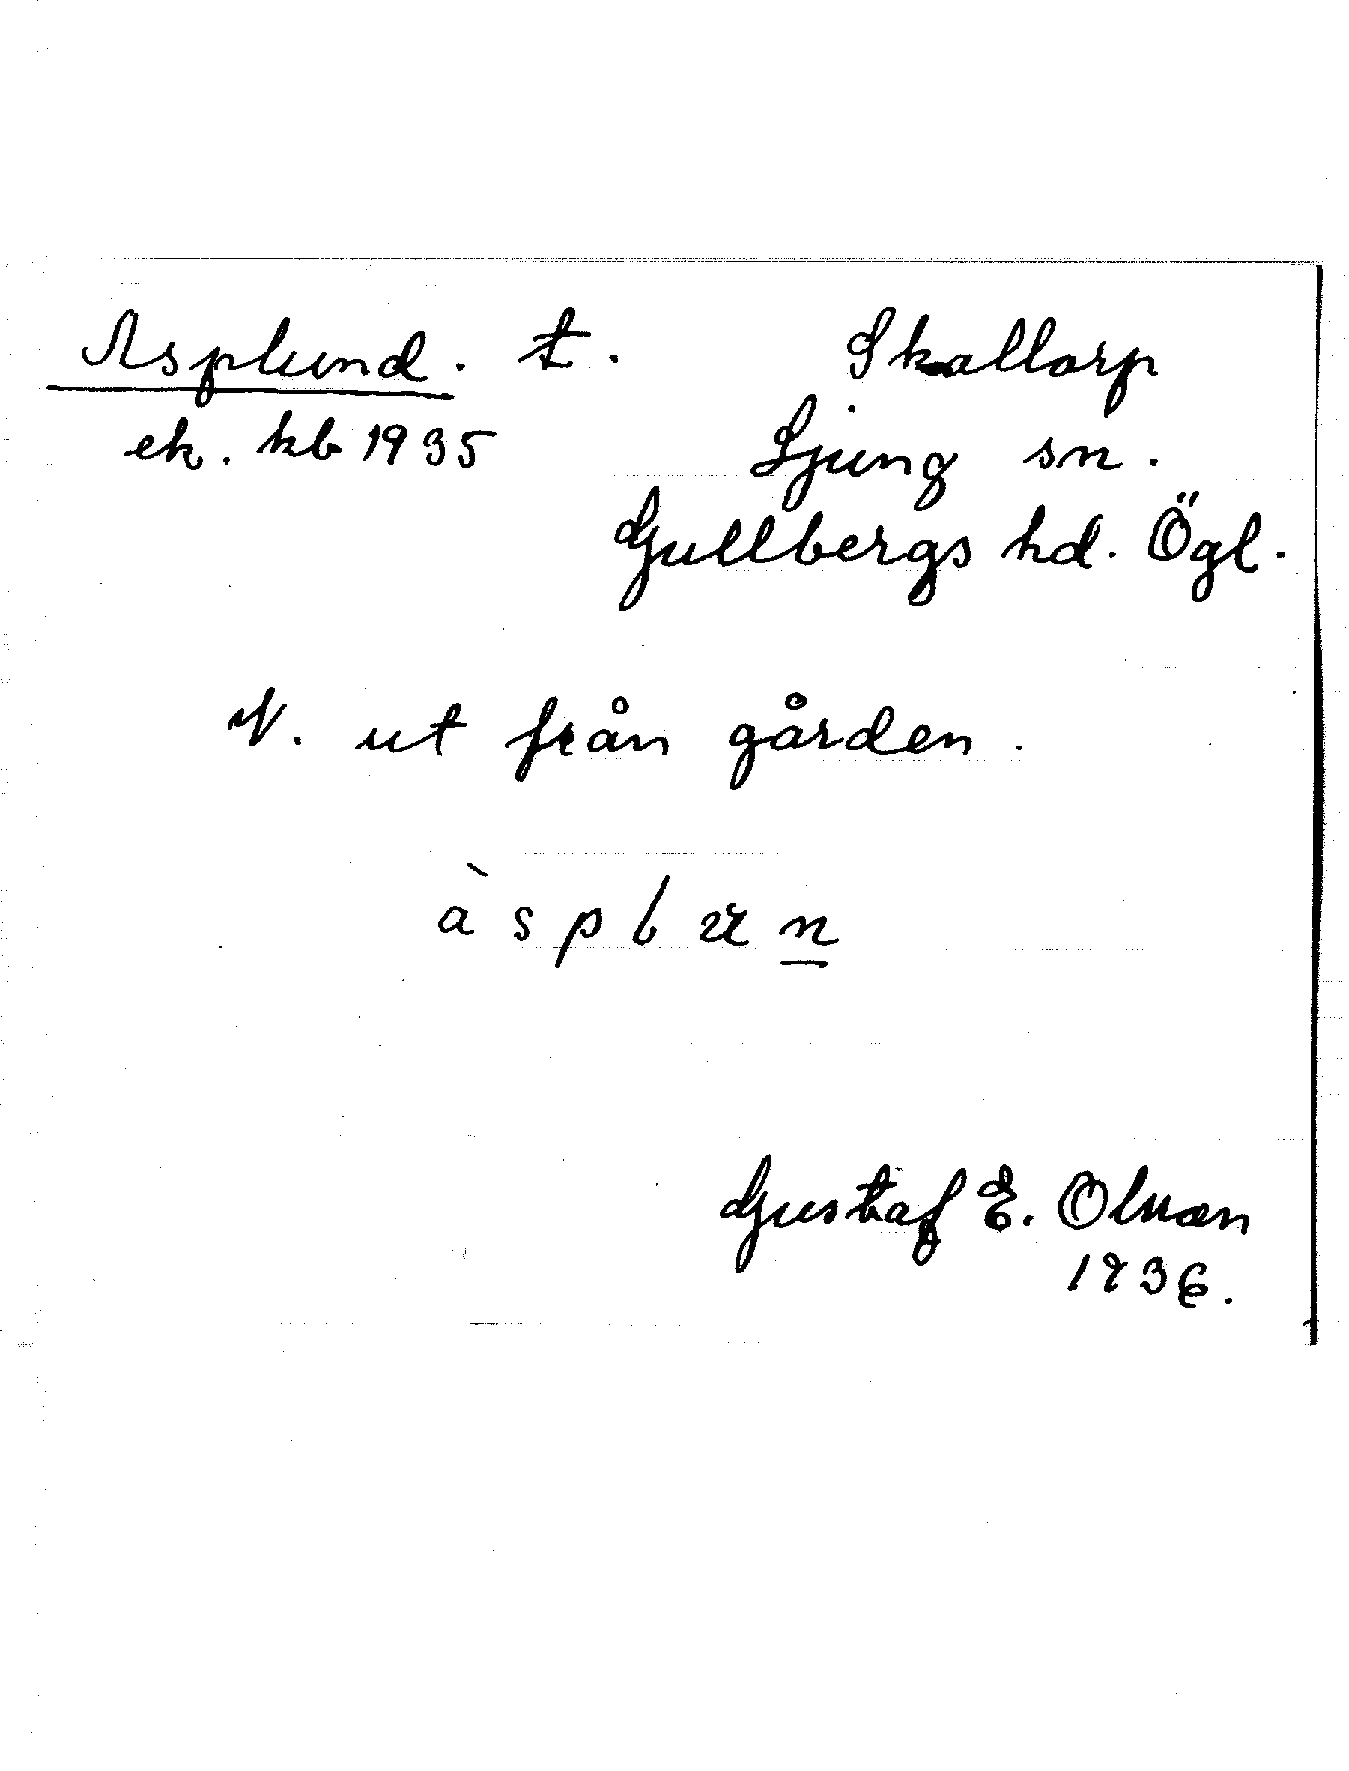 Asplund. t. Skallorp
ek. kb 1935 Ljung sn.
Gullbergs hd. Ögl.
V. ut från gården.
àsplun
Gustaf E. Olman
1936.